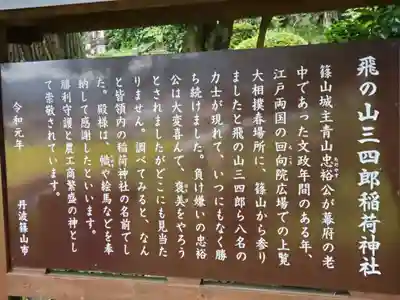 飛の山三四郎稲荷神社
篠山城主青山忠裕公が幕府の老
中であった文政年間のある年、
江戸両国の回向院広場での上覧
大相撲春場所に、篠山から参り
ましたと飛の山三四郎ら八名の
力士が現れて、いつにもなく勝
ち続けました。負け嫌いの忠裕
公は大変喜んで、褒美をやろう
とされましたがどこにも見当た
りません。調べてみると、なん
と皆領内の稲荷神社の名前でし
た。殿様は、幟や絵馬などを奉
納して感謝したといいます。
勝利守護と農工商繁盛の神とし
て崇敬されています。
令和元年
丹波篠山市